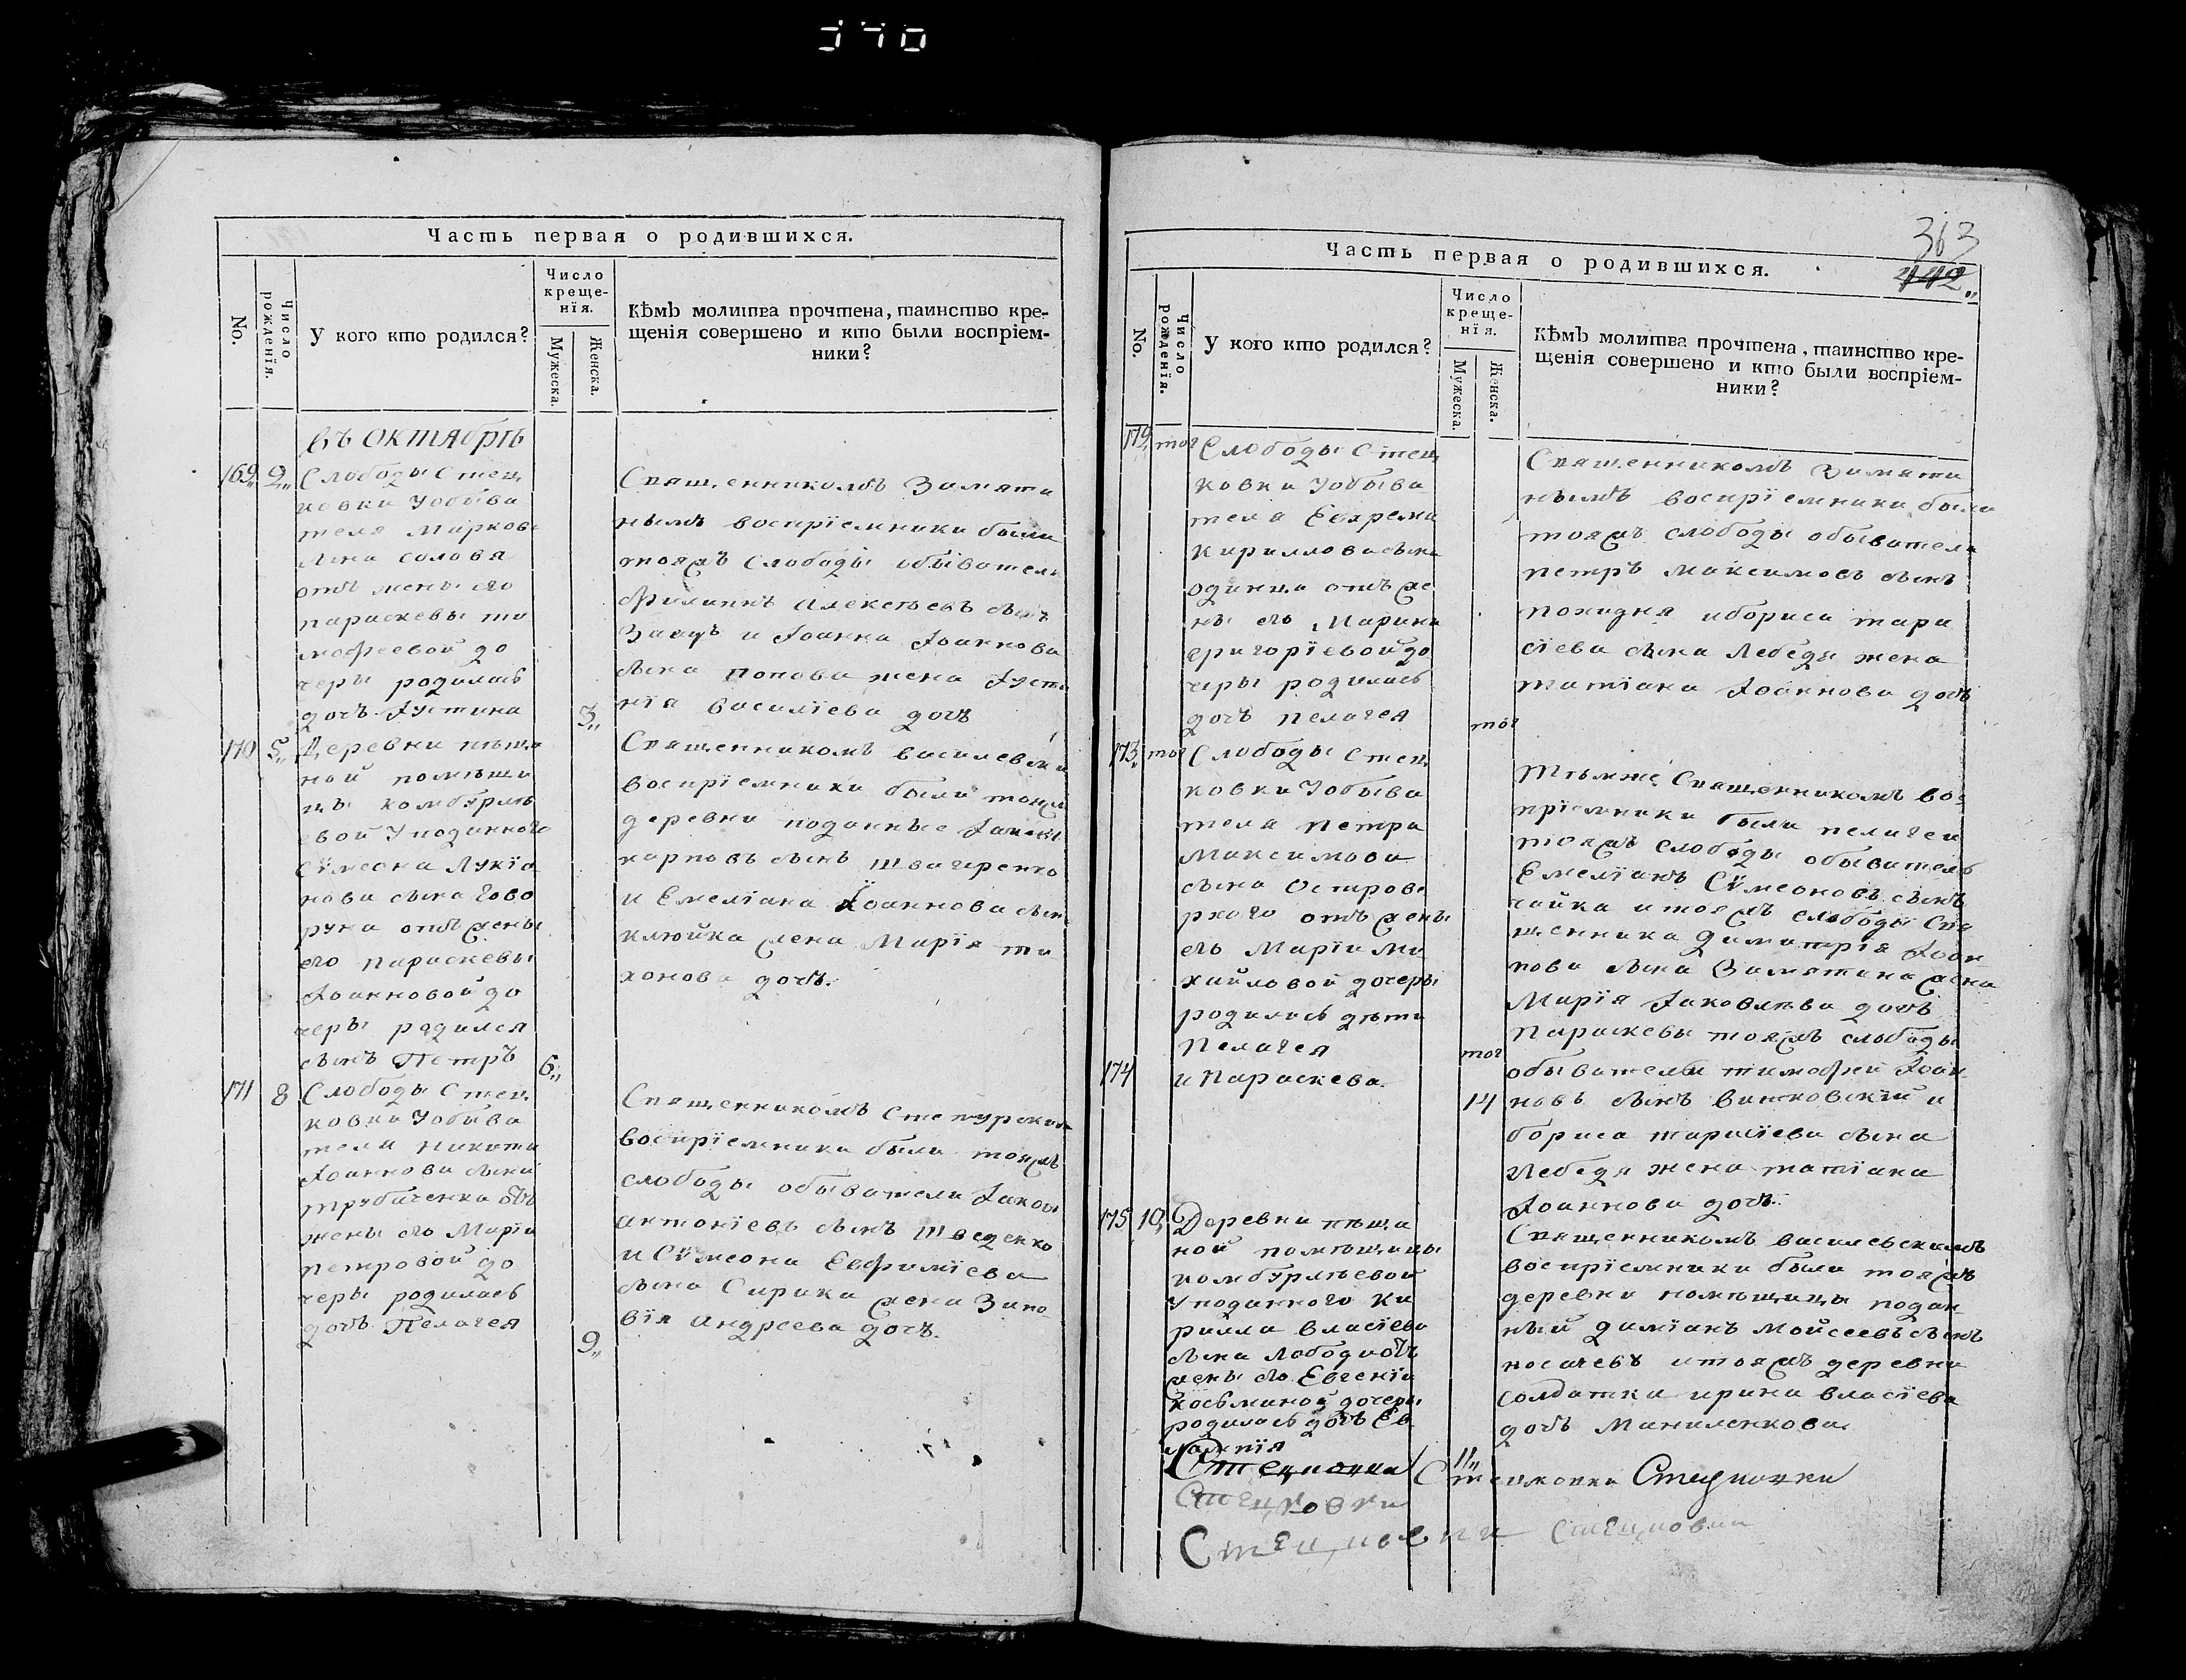 370
Часть первая о родившихся.
No.
Число рожденія.
У кого кто родился?
Число крещенія.
Мужеска.
Женска.
Кѣмъ молитва прочтена, таинство кре-
щенія совершено и кто были воспріем-
ники?
въ октябрѣ
169 2
Слободы Стец
ковки Уобыва
теля Маркова
сына соловя
отъ жены его
параскевы ти
мофеевой до
черы родилась
дочь Іустина
3
Священникомъ Замяти
нымъ воспріемники были
тояжъ Слободы обыватели
Филиппъ Алексѣевъ сынъ
Заецъ и Іоанна Іоаннова
сына попова жена Іусти
нія василіева дочь
170 5
Деревни пѣща
ной помѣщи
цы комбурлѣ
евой Уподаннаго
Сѵмеона Лукіа
нова сына Гово
руна отъ жены
его параскевы
Іоанновой до
черы родился
сынъ Петръ
6
Священникомъ василевски
воспріемники были тояжъ
деревни поданные
карповъ сынъ Швагиренко
и Емеліана Іоаннова сына
клюйка жена Марія ти
хонова дочь.
171 8
Слободы Стец
ковки Уобыва
теля никиты
Іоаннова сына
трубаченка отъ
жены его Маріи
петровой до
черы родилась
дочь Пелагея
9
Священникомъ Степурским
воспріемники были тояжъ
слободы обыватели Іаковъ
антоніевъ сынъ Шведенко
и Сѵмеона Евфиміева
сына Сирика жена Зино
вія андреева дочь.
363
142
Часть первая о родившихся.
No.
Число рожденія.
У кого кто родился?
Число крещенія.
Мужеска.
Женска.
Кѣмъ молитва прочтена, таинство кре-
щенія совершено и кто были воспріем-
ники?
179 тог
Слободы Стец
ковки Уобыва
теля Ефрема
кириллова сына
одинца отъ же
ны его Марины
григоріевой до
черы родилась
дочь пелагея
тог
Священникомъ Замяти
нымъ воспріемники были
тояжъ слободы обыватели
петръ максимовъ сынъ
походня и бориса тара
сіева сына Лебедя жена
татіана Іоаннова дочь
173 тог
Слободы Стец
ковки Уобыва
теля петра
Максимова
сына Острове
рхого отъ жены
его Маріи Ми
хайловой дочеры
родились дѣти
Пелагея
тог
174
и Параскева.
14
тѣмже Священникомъ вос
пріемники были пелагеи
тояжъ слободы обыватель
Емеліанъ Сѵмеоновъ сынъ
чайка и тояжъ слободы Свя
щенника димитрія Іоан
нова сына Замятина жена
Марія Іаковлева дочь
Параскевы тояжъ слободы
обыватели тимофей Іоан
новъ сынъ витковскій и
бориса тарасіева сына
Лебедя жена татіана
Іоаннова дочь.
175 10
Деревни пѣща
ной помѣщицы
комбурлѣевой
Уподанного Ки
рилла власіева
сына лободы отъ
жены его Евгеніи
Косьминой дочеры
родилась дочь Ев
лампія
11
Священникомъ василевскимъ
воспріемники были тояжъ
деревни помѣщицы подан
ный даміанъ Мойсеевъ сынъ
носачевъ и тояжъ деревни
солдатка ирина власіева
дочь Маниленкова.
Стецковки
Стецковки